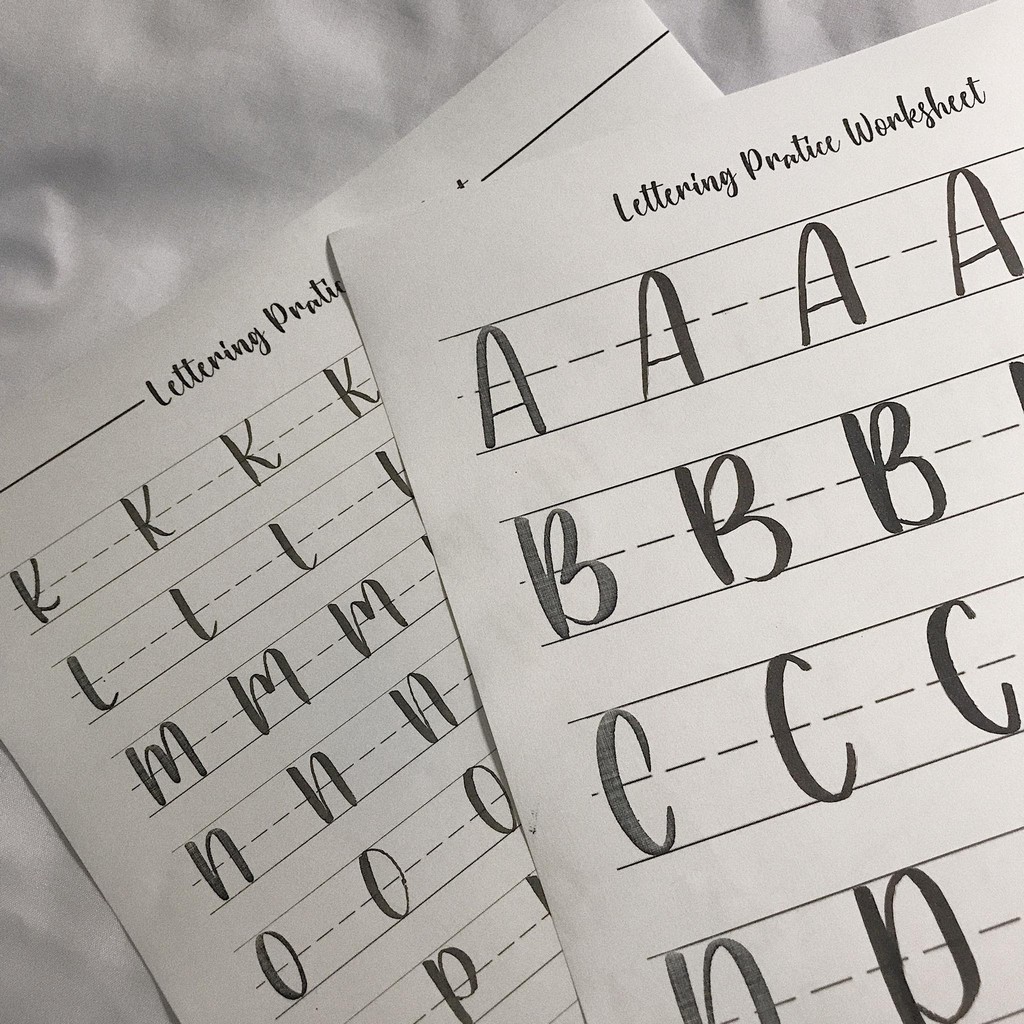 Lettering Pratice Worksheet
A A A A
B B B
C C C
D D
Lettering Pratic
K K K K
L L L
M M M
N N N
O O O
P